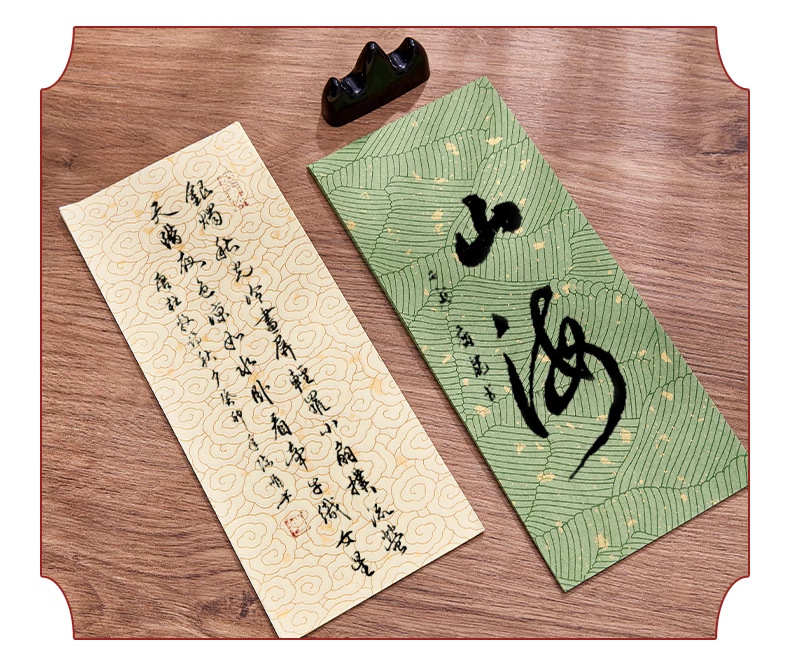 銀燭秋光冷畫屏輕羅小扇撲流螢
天階夜色涼如水卧看牽牛織女星
唐杜牧詩秋夕癸卯年
山海